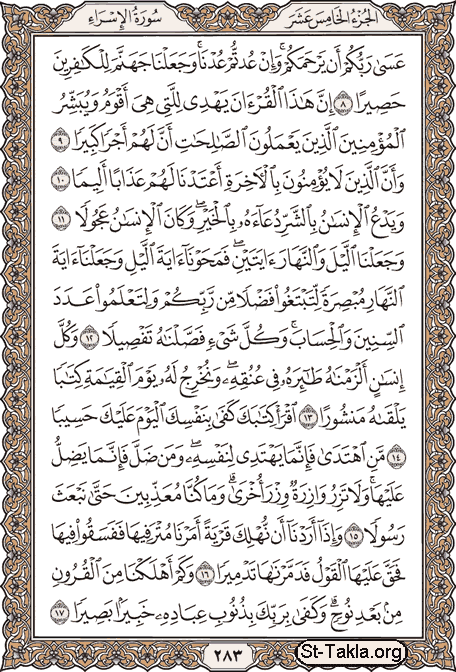 سُورَةُ الإِسْرَاء الجُزْءُ الخَامِسَ عَشَرَ
عَسَىٰ رَبُّكُمْ أَن يَرْحَمَكُمْ ۚ وَإِنْ عُدتُّمْ عُدْنَا ۘ وَجَعَلْنَا جَهَنَّمَ لِلْكَٰفِرِينَ
حَصِيرًا ٨ إِنَّ هَٰذَا ٱلْقُرْءَانَ يَهْدِى لِلَّتِى هِىَ أَقْوَمُ وَيُبَشِّرُ
ٱلْمُؤْمِنِينَ ٱلَّذِينَ يَعْمَلُونَ ٱلصَّٰلِحَٰتِ أَنَّ لَهُمْ أَجْرًا كَبِيرًا ٩
وَأَنَّ ٱلَّذِينَ لَا يُؤْمِنُونَ بِٱلْءَاخِرَةِ أَعْتَدْنَا لَهُمْ عَذَابًا أَلِيمًا ١٠
وَيَدْعُ ٱلْإِنسَٰنُ بِٱلشَّرِّ دُعَآءَهُۥ بِٱلْخَيْرِ ۖ وَكَانَ ٱلْإِنسَٰنُ عَجُولًا ١١
وَجَعَلْنَا ٱلَّيْلَ وَٱلنَّهَارَ ءَايَتَيْنِ ۖ فَمَحَوْنَآ ءَايَةَ ٱلَّيْلِ وَجَعَلْنَآ ءَايَةَ
ٱلنَّهَارِ مُبْصِرَةً لِّتَبْتَغُوا۟ فَضْلًا مِّن رَّبِّكُمْ وَلِتَعْلَمُوا۟ عَدَدَ
ٱلسِّنِينَ وَٱلْحِسَابَ ۚ وَكُلَّ شَىْءٍ فَصَّلْنَٰهُ تَفْصِيلًا ١٢ وَكُلَّ
إِنسَٰنٍ أَلْزَمْنَٰهُ طَٰٓئِرَهُۥ فِى عُنُقِهِۦ ۖ وَنُخْرِجُ لَهُۥ يَوْمَ ٱلْقِيَٰمَةِ كِتَٰبًا
يَلْقَىٰهُ مَنشُورًا ١٣ ٱقْرَأْ كِتَٰبَكَ كَفَىٰ بِنَفْسِكَ ٱلْيَوْمَ عَلَيْكَ حَسِيبًا
١٤ مَّنِ ٱهْتَدَىٰ فَإِنَّمَا يَهْتَدِى لِنَفْسِهِۦ ۖ وَمَن ضَلَّ فَإِنَّمَا يَضِلُّ
عَلَيْهَا ۚ وَلَا تَزِرُ وَازِرَةٌ وِزْرَ أُخْرَىٰ ۗ وَمَا كُنَّا مُعَذِّبِينَ حَتَّىٰ نَبْعَثَ
رَسُولًا ١٥ وَإِذَآ أَرَدْنَآ أَن نُّهْلِكَ قَرْيَةً أَمَرْنَا مُتْرَفِيهَا فَفَسَقُوا۟ فِيهَا
فَحَقَّ عَلَيْهَا ٱلْقَوْلُ فَدَمَّرْنَٰهَا تَدْمِيرًا ١٦ وَكَمْ أَهْلَكْنَا مِنَ ٱلْقُرُونِ
مِنۢ بَعْدِ نُوحٍ ۗ وَكَفَىٰ بِرَبِّكَ بِذُنُوبِ عِبَادِهِۦ خَبِيرًۢا بَصِيرًا ١٧
٢٨٣
St-Takla.org